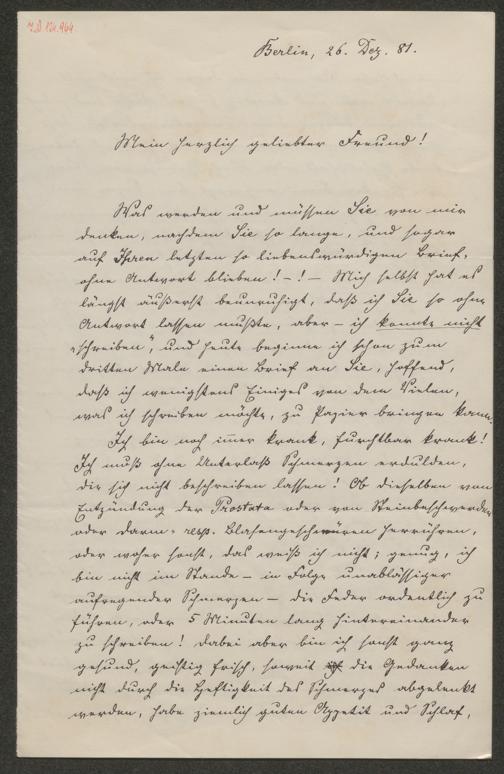 J.N. 124.964.
Berlin, 26. Dez. 81.
Mein herzlich geliebter Freund!
Was werden und müssen Sie von mir
denken, nachdem Sie so lange, und sogar
auf Ihren letzten so liebenswürdigen Brief,
ohne Antwort blieben! – ! – Mich selbst hat es
längst äußerst beunruhigt, daß ich Sie so ohne
Antwort lassen mußte, aber – ich konnte nicht
„schreiben“, und heute beginne ich schon zum
dritten Male einen Brief an Sie, hoffend,
daß ich wenigstens Einiges von dem Vielen,
was ich schreiben möchte, zu Papier bringen kann.
Ich bin noch im̄er krank, furchtbar krank!
Ich muß ohne Unterlaß Schmerzen erdulden,
die sich nicht beschreiben lassen! Ob dieselben von
Entzündung der Prostata oder von Steinbeschwerden
oder Darm- resp. Blasengeschwüren herrühren,
oder woher sonst, das weiß ich nicht; genug, ich
bin nicht im Stande – in Folge unablässiger
aufregender Schmerzen – die Feder ordentlich zu
führen, oder 5 Minuten lang hintereinander
zu schreiben! Dabei aber bin ich sonst ganz
gesund, geistig frisch, soweit die Gedanken
nicht durch die Heftigkeit des Schmerzes abgelenkt
werden, habe ziemlich guten Appetit und Schlaf,